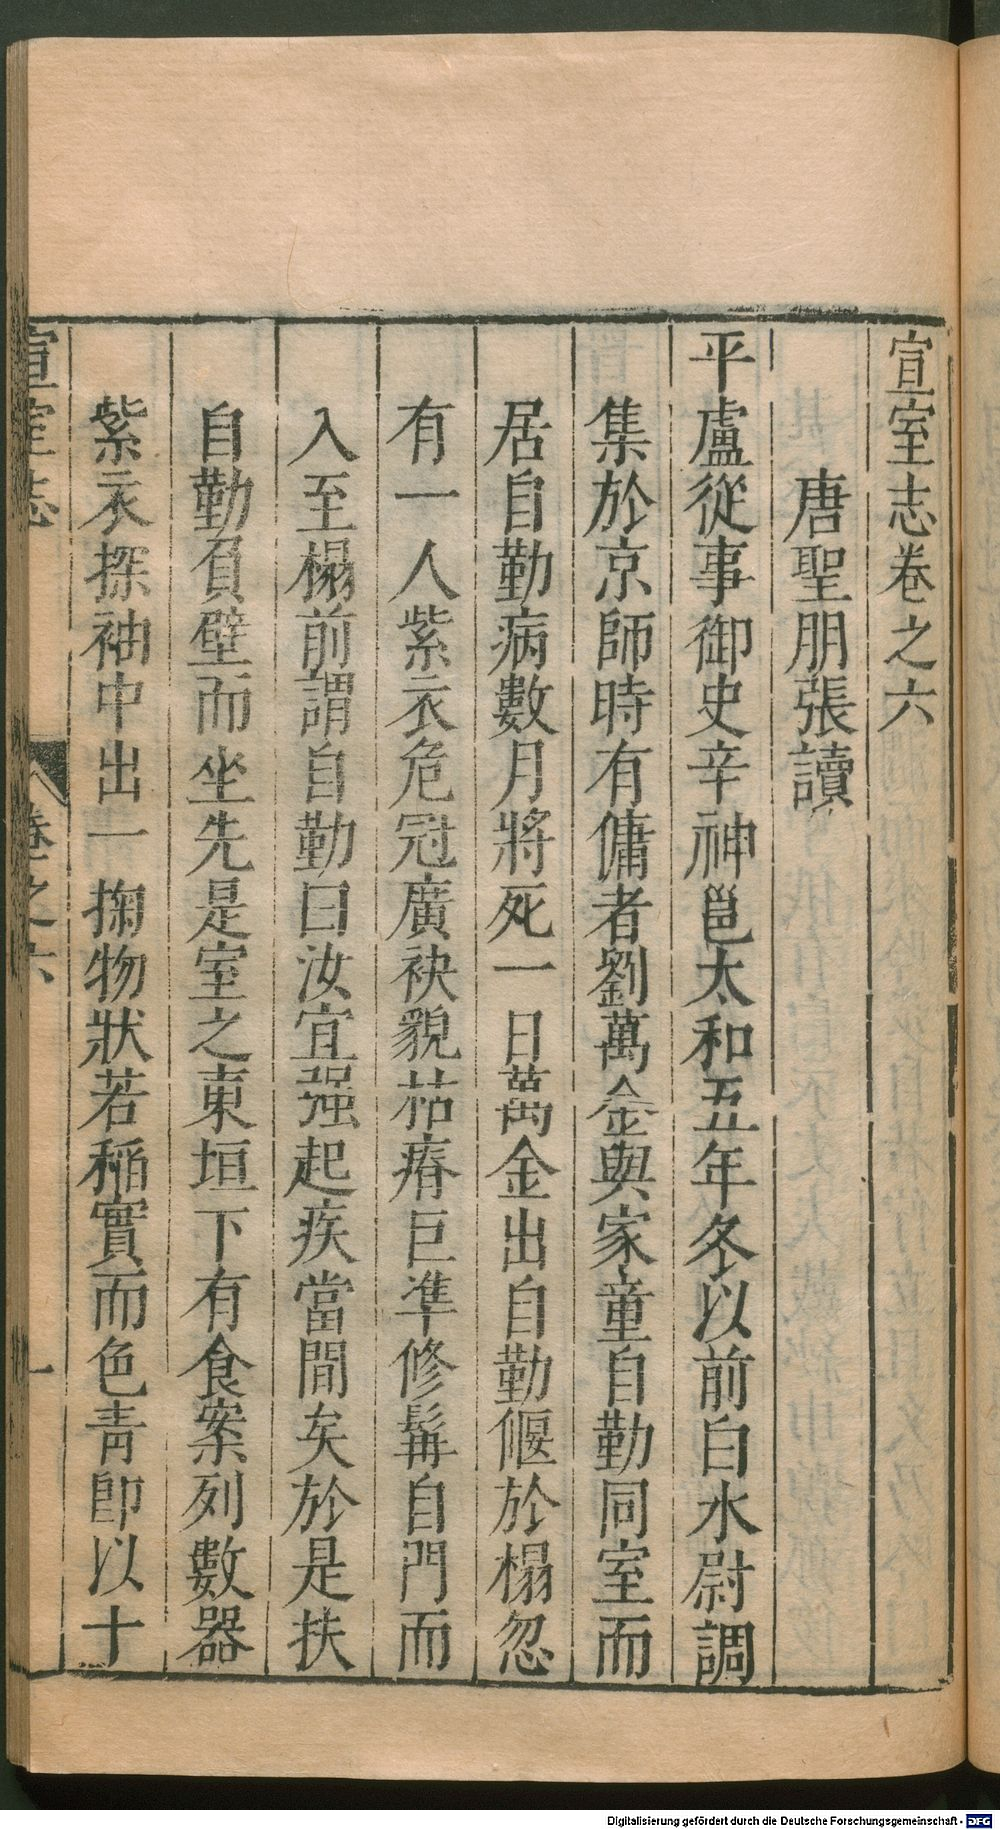 宣室志卷之六
唐聖朋張讀
平盧從事御史辛神邕太和五年冬以前白水尉調
集於京師時有傭者劉萬金與家童自勤同室而
居自勤病數月將死一日萬金出自勤偃於榻忽
有一人紫衣危冠廣袂貌枯瘠巨準修髯自門而
入至榻前謂自勤曰汝宜强起疾當間矣於是扶
自勤負壁而坐先是室之東垣下有食案列數器
紫衣探袖中出一掬物狀若稲實而色青卽以十
宣室志
卷之六
一
Digitalisierung gefördert durch die Deutsche Forschungsgemeinschaft - DFG